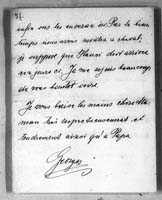 enfin
temps nous avons montés a cheval,
je suppose que Hansi doit arriver
un jours ci. Je me réjouis beaucoup
de vous bientôt voir.
Je vous baise les mains chère Ma-
man très respectueusement et
tendrement ainsi qu'à Papa.
Georges